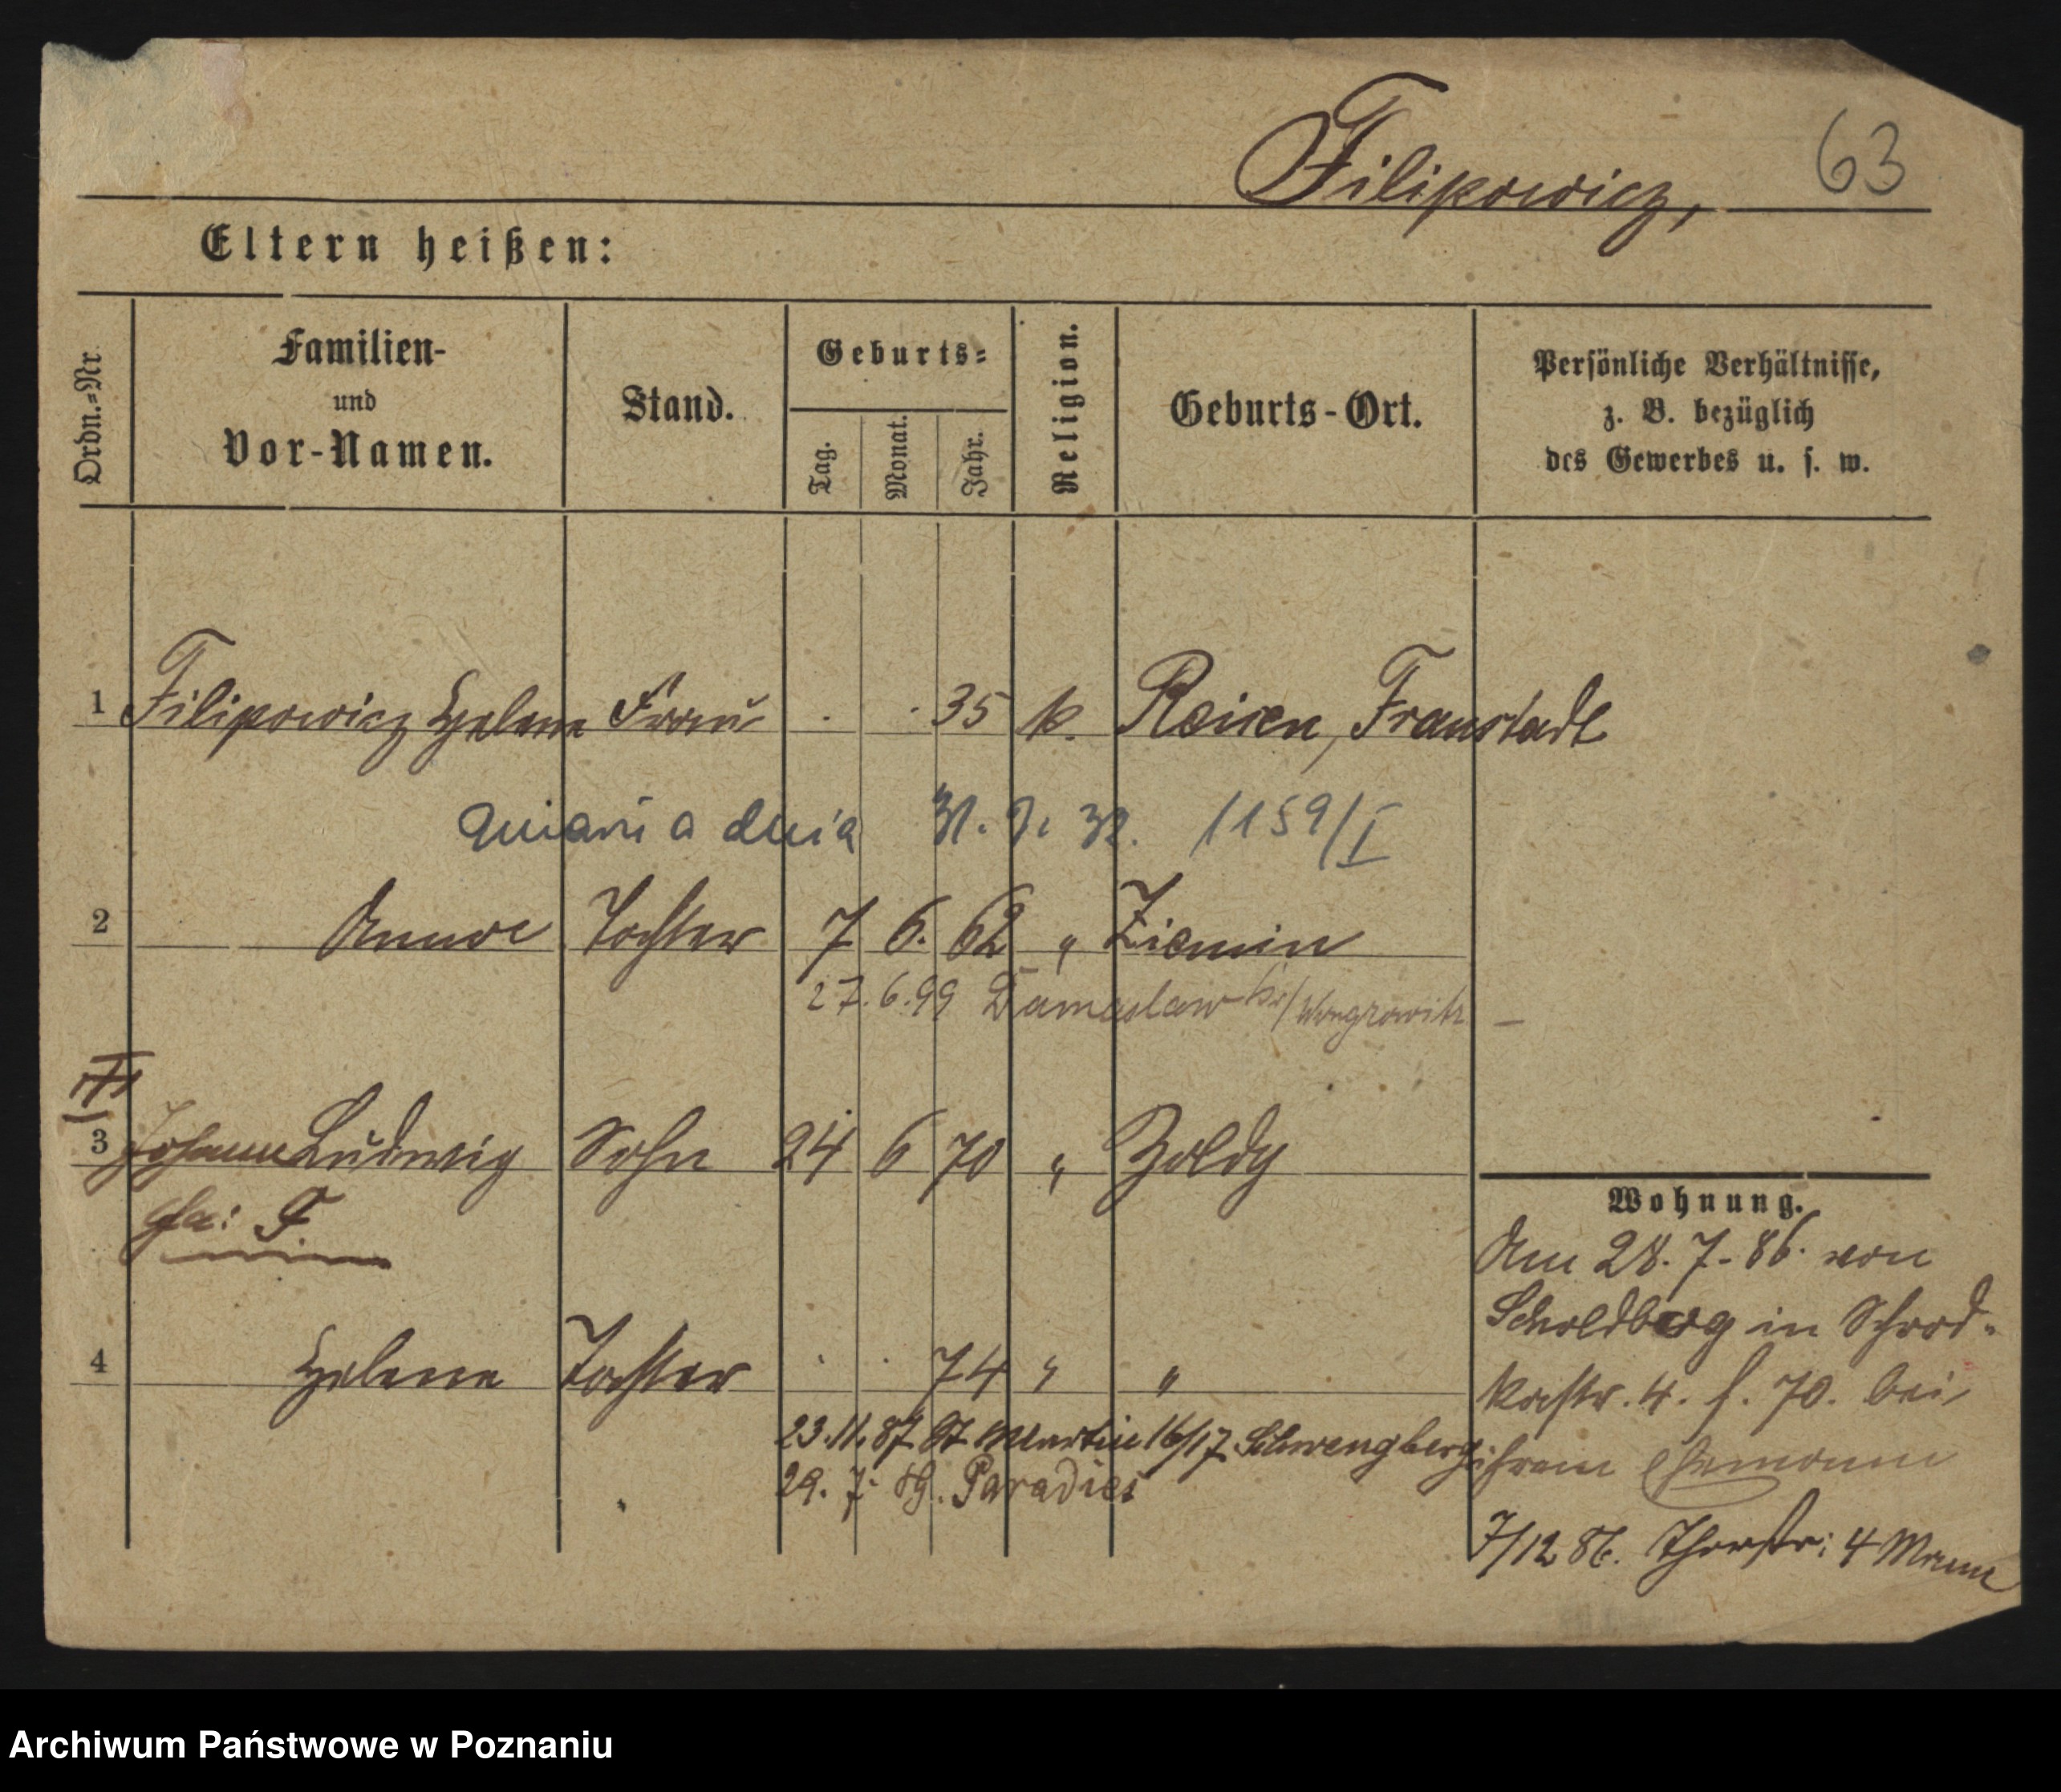 Filipowicz, 63
Eltern heißen:
Ordn.=Nr.
Familien-
und
Vor-Namen.
Stand.
Geburts=
Tag.
Monat.
Jahr.
Religion.
Geburts-Ort.
Persönliche Verhältnisse,
z. B. bezüglich
des Gewerbes u. s. w.
1 Filipowicz Helene Frau . . 35 k. Reisen, Fraustadt
dnia 1159/I
2 Tochter 7 6. 62 " Ziemin
27.6.99 Damaslaw Kr/Wongrowitz —
3 Johann Ludwig Sohn 24 6 70 "
F
4 Helene Tochter . . 74 " "
23.11.87 St Martin 16/17 Schwengberg
29. 7. Paradies
Wohnung.
Am 28. 7. 86. von
in Schrod-
kastr. 4. f. 70. bei
ihrem Ehemann
7/12 86. Thorstr: 4 Mann
Archiwum Państwowe w Poznaniu